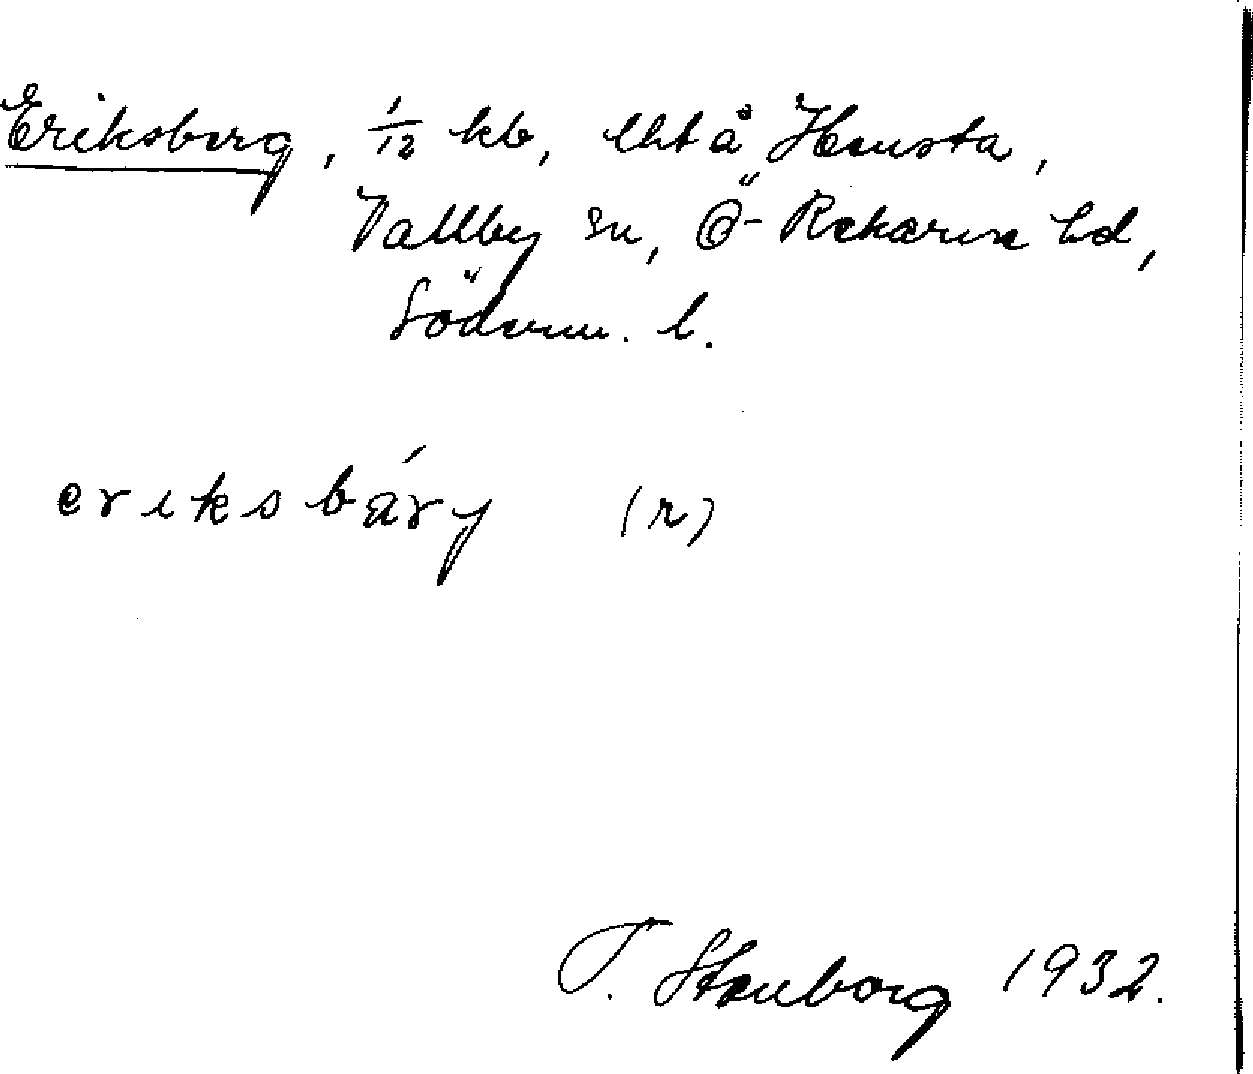 Eriksberg, 1/12 kb, lht å Hensta,
Vallby sn, Ö-Rekarne hd,
Söderm. l.
eriksbárj (r)
T. Stenborg 1932.